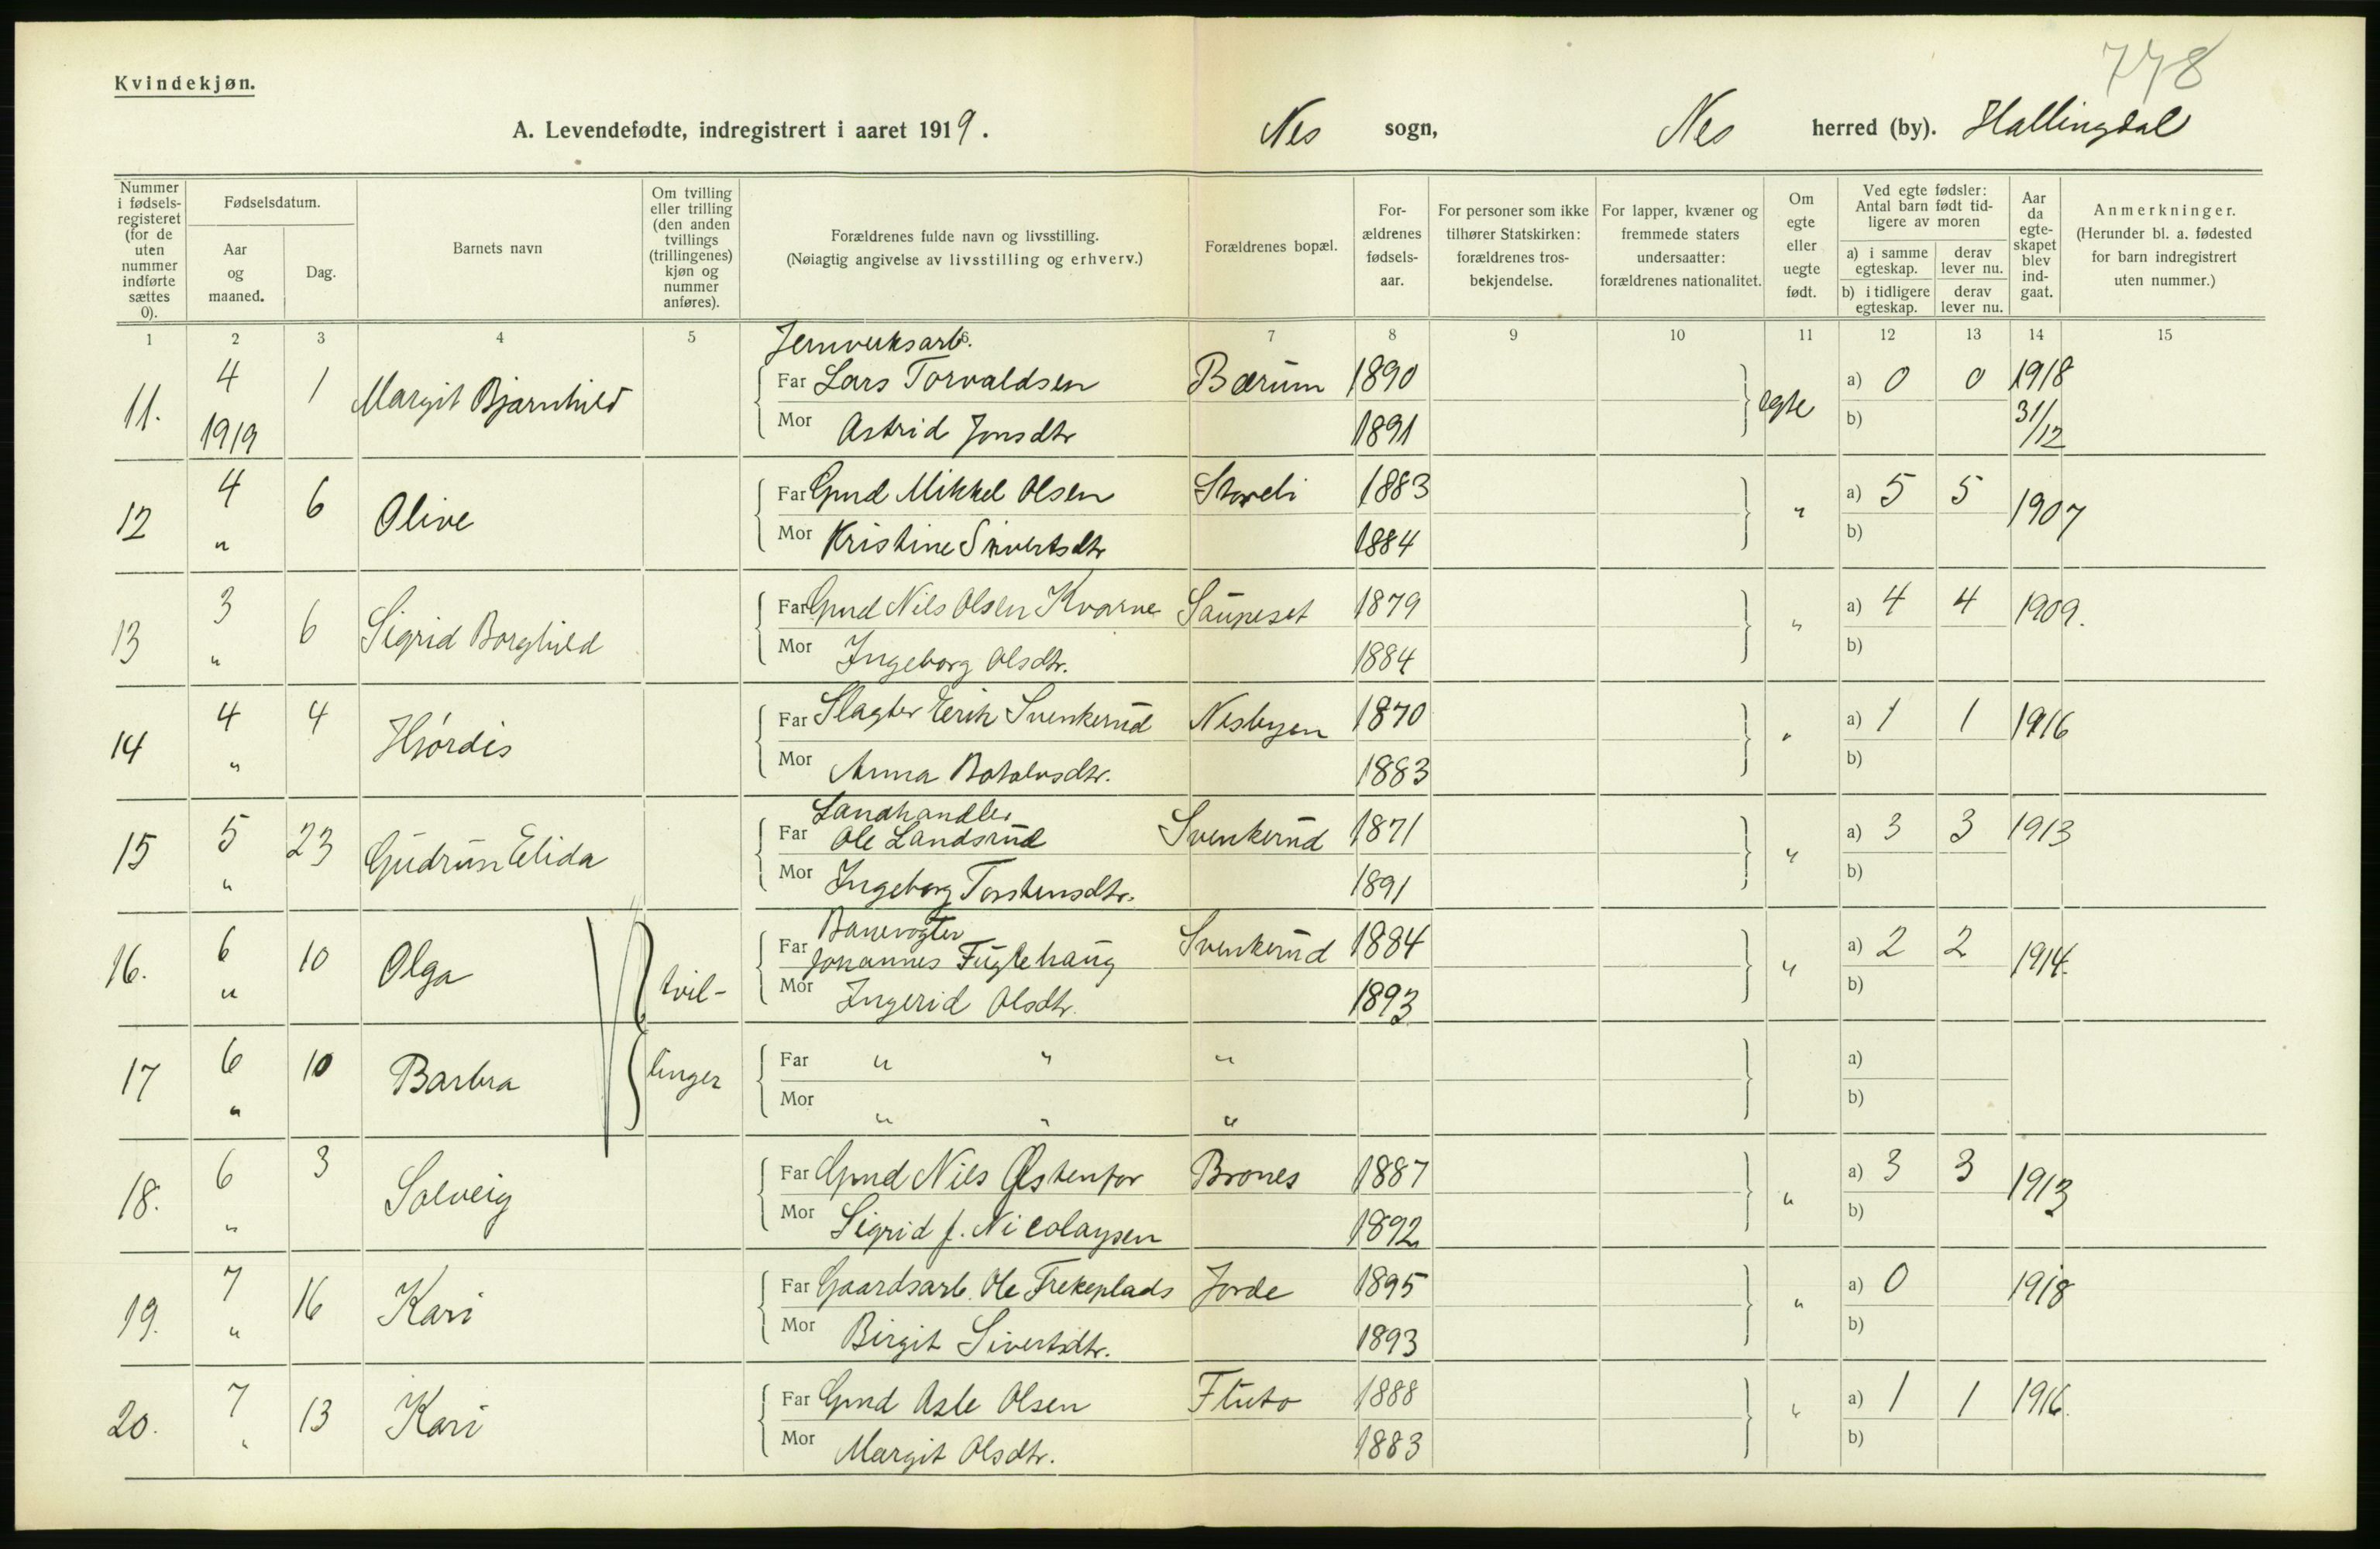 778
Kvindekjøn.
A. Levendefødte, indregistrert i aaret 1919. Nes sogn, Nes herred (by). Hallingdal
Nummer i fødsels-registeret (for de uten nummer indførte sættes 0). Fødselsdatum. Aar og maaned. Dag. Barnets navn Om tvilling eller trilling (den anden tvillings (trillingenes) kjøn og nummer anføres). Forældrenes fulde navn og livsstilling. (Nøiagtig angivelse av livsstilling og erhverv.) Forældrenes bopæl. For-ældrenes fødsels-aar. For personer som ikke tilhører Statskirken: forældrenes tros-bekjendelse. For lapper, kvæner og fremmede staters undersaatter: forældrenes nationalitet. Om egte eller uegte født. Ved egte fødsler: Antal barn født tid-ligere av moren a) i samme egteskap. derav lever nu. b) i tidligere egteskap. derav lever nu. Aar da egte-skapet blev ind-gaat. Anmerkninger. (Herunder bl. a. fødested for barn indregistrert uten nummer.)
1 2 3 4 5 6 7 8 9 10 11 12 13 14 15
Jernverksarb.
11. 4 1 Margit Bjarnhild Far Lars Torvaldsen Bærum 1890 egte a) 0 0 1918
1919 Mor Astrid Jonsdtr 1891 b) 31/12
12 4 6 Olive Far Gmd Mikkel Olsen Storeli 1883 " a) 5 5 1907
" Mor Kristine Sivertsdtr 1884 b)
13 3 6 Sigrid Borghild Far Gmd Nils Olsen Kvarne Sauneset 1879 " a) 4 4 1909.
" Mor Ingeborg Olsdtr. 1884 b)
14 4 4 Hjórdis Far Slagter Eerik Svenkerud Nesbyen 1870 " a) 1 1 1916
" Mor Anna Botolvsdtr. 1883 b)
Landhandler
15 5 23 Gudrun Elida Far Ole Landsrud Svenkerud 1871 " a) 3 3 1913
" Mor Ingeborg Torstensdtr. 1891 b)
Banevogter
16. 6 10 Olga tvil- Far Johannes Fuglehaug Svenkerud 1884 " a) 2 2 1914.
" Mor Ingerid Olsdtr. 1893 b)
17 6 10 Barbra linger Far " " " a)
" Mor " " " b)
18. 6 3 Solveig Far Gmd Nils Østenfor Brones 1887 " a) 3 3 1913
" Mor Sigrid f. Nicolaysen 1892 b)
19. 7 16 Kari Far Gaardsarb. Ole Trekeplads Jorde 1895 " a) 0 1918
" Mor Birgit Sivertsdtr. 1893 b)
20. 7 13 Kari Far Gmd Asle Olsen Fluto 1888 " a) 1 1 1916.
" Mor Margit Olsdtr. 1883 b)